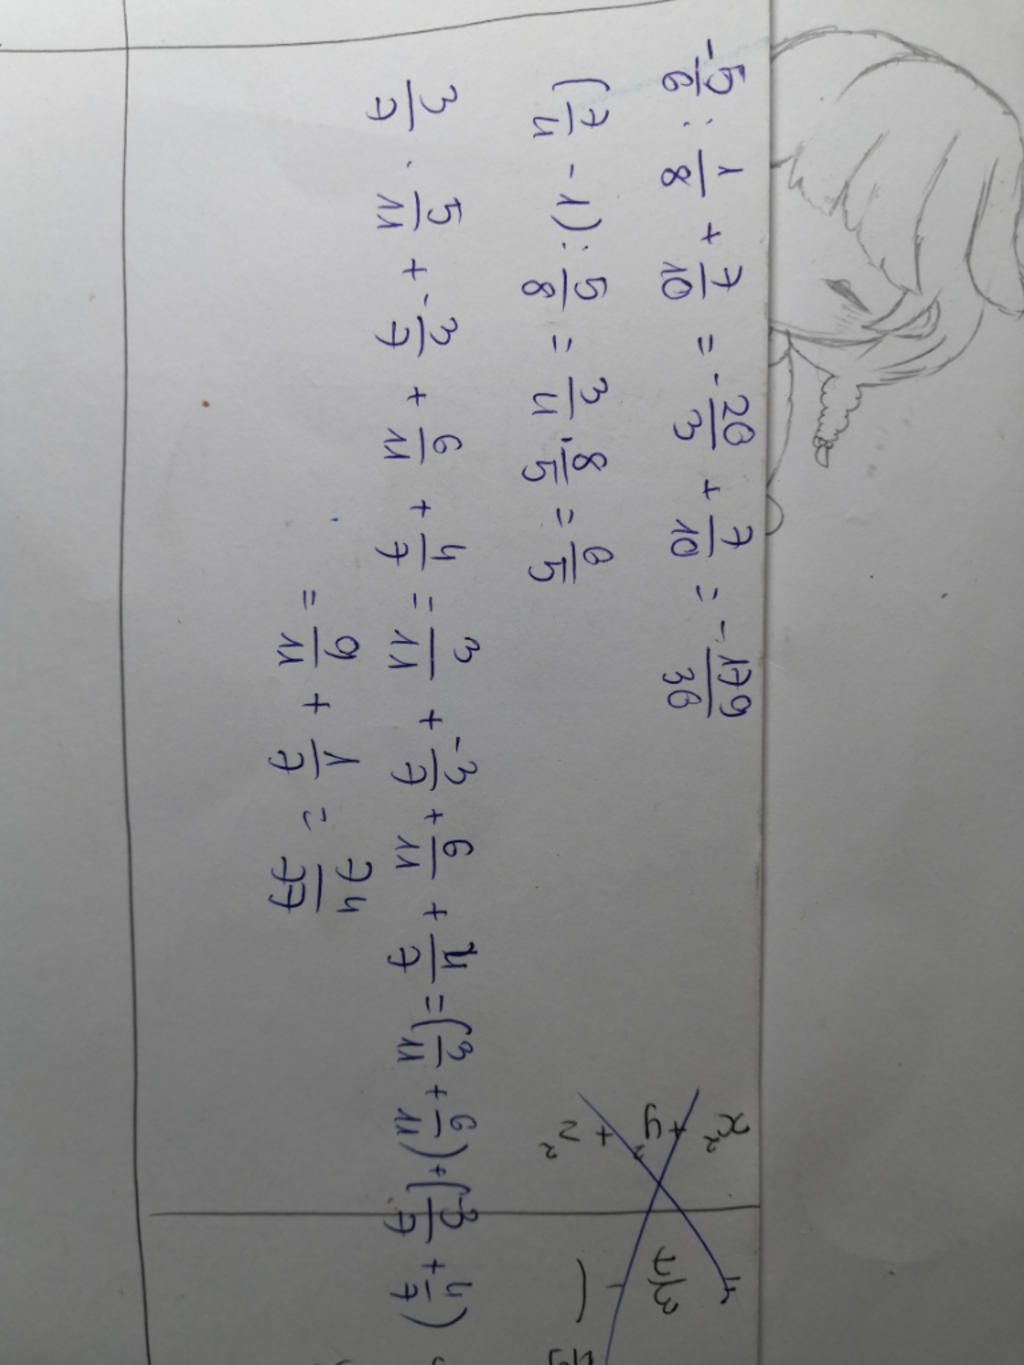 -5/6 : 1/8 + 7/10 = -20/3 + 7/10 = -179/30
(7/4 - 1) : 5/8 = 3/4 · 8/5 = 6/5
3/7 · 5/11 + -3/7 + 6/11 + 4/7 = 3/11 + -3/7 + 6/11 + 4/7 = (3/11 + 6/11) + (-3/7 + 4/7)
= 9/11 + 1/7 = 74/77
x²
+ y²
+ z²